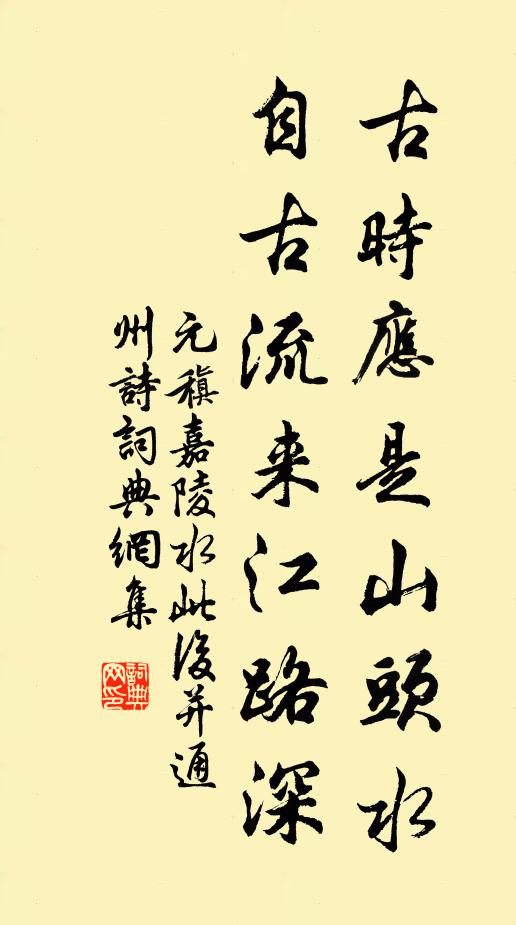 古時應是山頭水
自古流来江路深
元稹嘉陵水此後并通
州詩詞典網集
詞典
网印